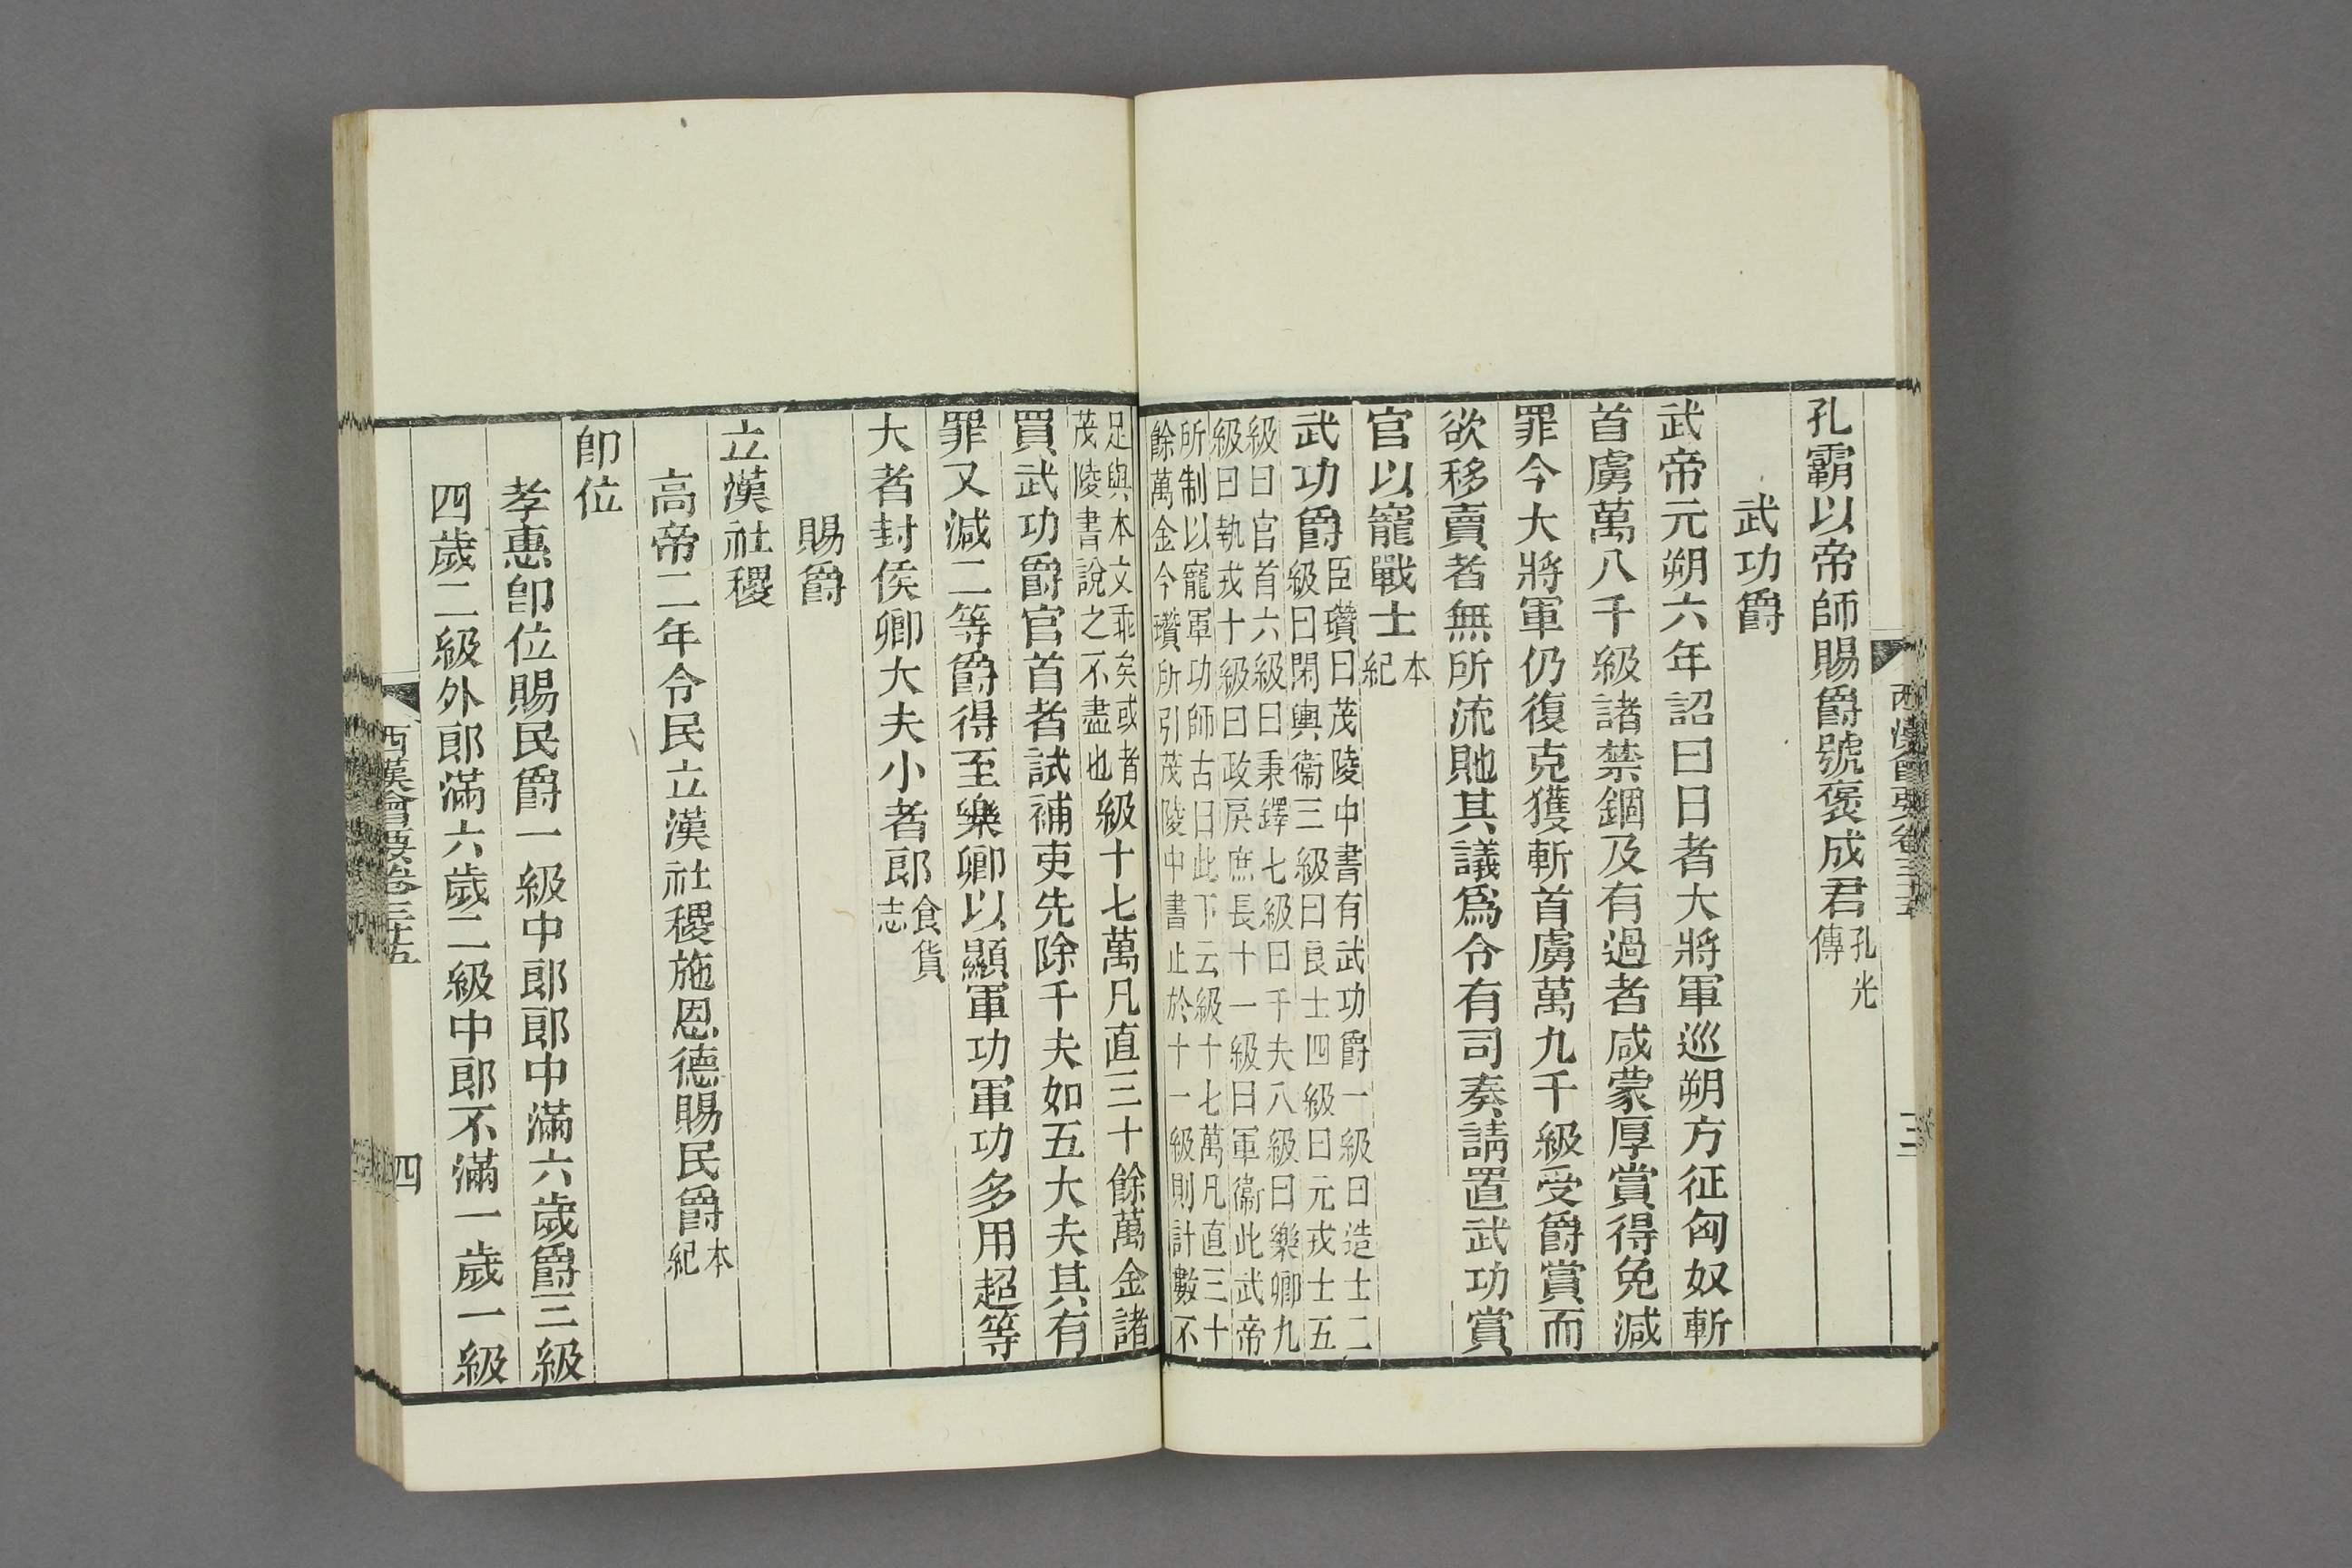 西漢會要卷三十五
三
孔霸以帝師賜爵號褒成君孔光傳
武功爵
武帝元朔六年詔曰日者大將軍巡朔方征匈奴斬
首虜萬八千級諸禁錮及有過者咸蒙厚賞得免減
罪今大將軍仍復克獲斬首虜萬九千級受爵賞而
欲移賣者無所流貤其議爲令有司奏請置武功賞
官以寵戰士本紀
武功爵
臣瓚曰茂陵中書有武功爵一級曰造士二
級曰閑輿衞三級曰良士四級曰元戎士五
級曰官首六級曰秉鐸七級曰千夫八級曰樂卿九
級曰執戎十級曰政戾庶長十一級曰軍衞此武帝
所制以寵軍功師古曰此下云級十七萬凡直三十
餘萬金今瓚所引茂陵中書止於十一級則計數不
足與本文乖矣或者
茂陵書說之不盡也
級十七萬凡直三十餘萬金諸
買武功爵官首者試補吏先除千夫如五大夫其有
罪又減二等爵得至樂卿以顯軍功軍功多用超等
大者封侯卿大夫小者郎食貨志
賜爵
立漢社稷
高帝二年令民立漢社稷施恩德賜民爵本紀
卽位
孝惠卽位賜民爵一級中郎郎中滿六歲爵三級
四歲二級外郎滿六歲二級中郎不滿一歲一級
西漢會要卷三十五
四